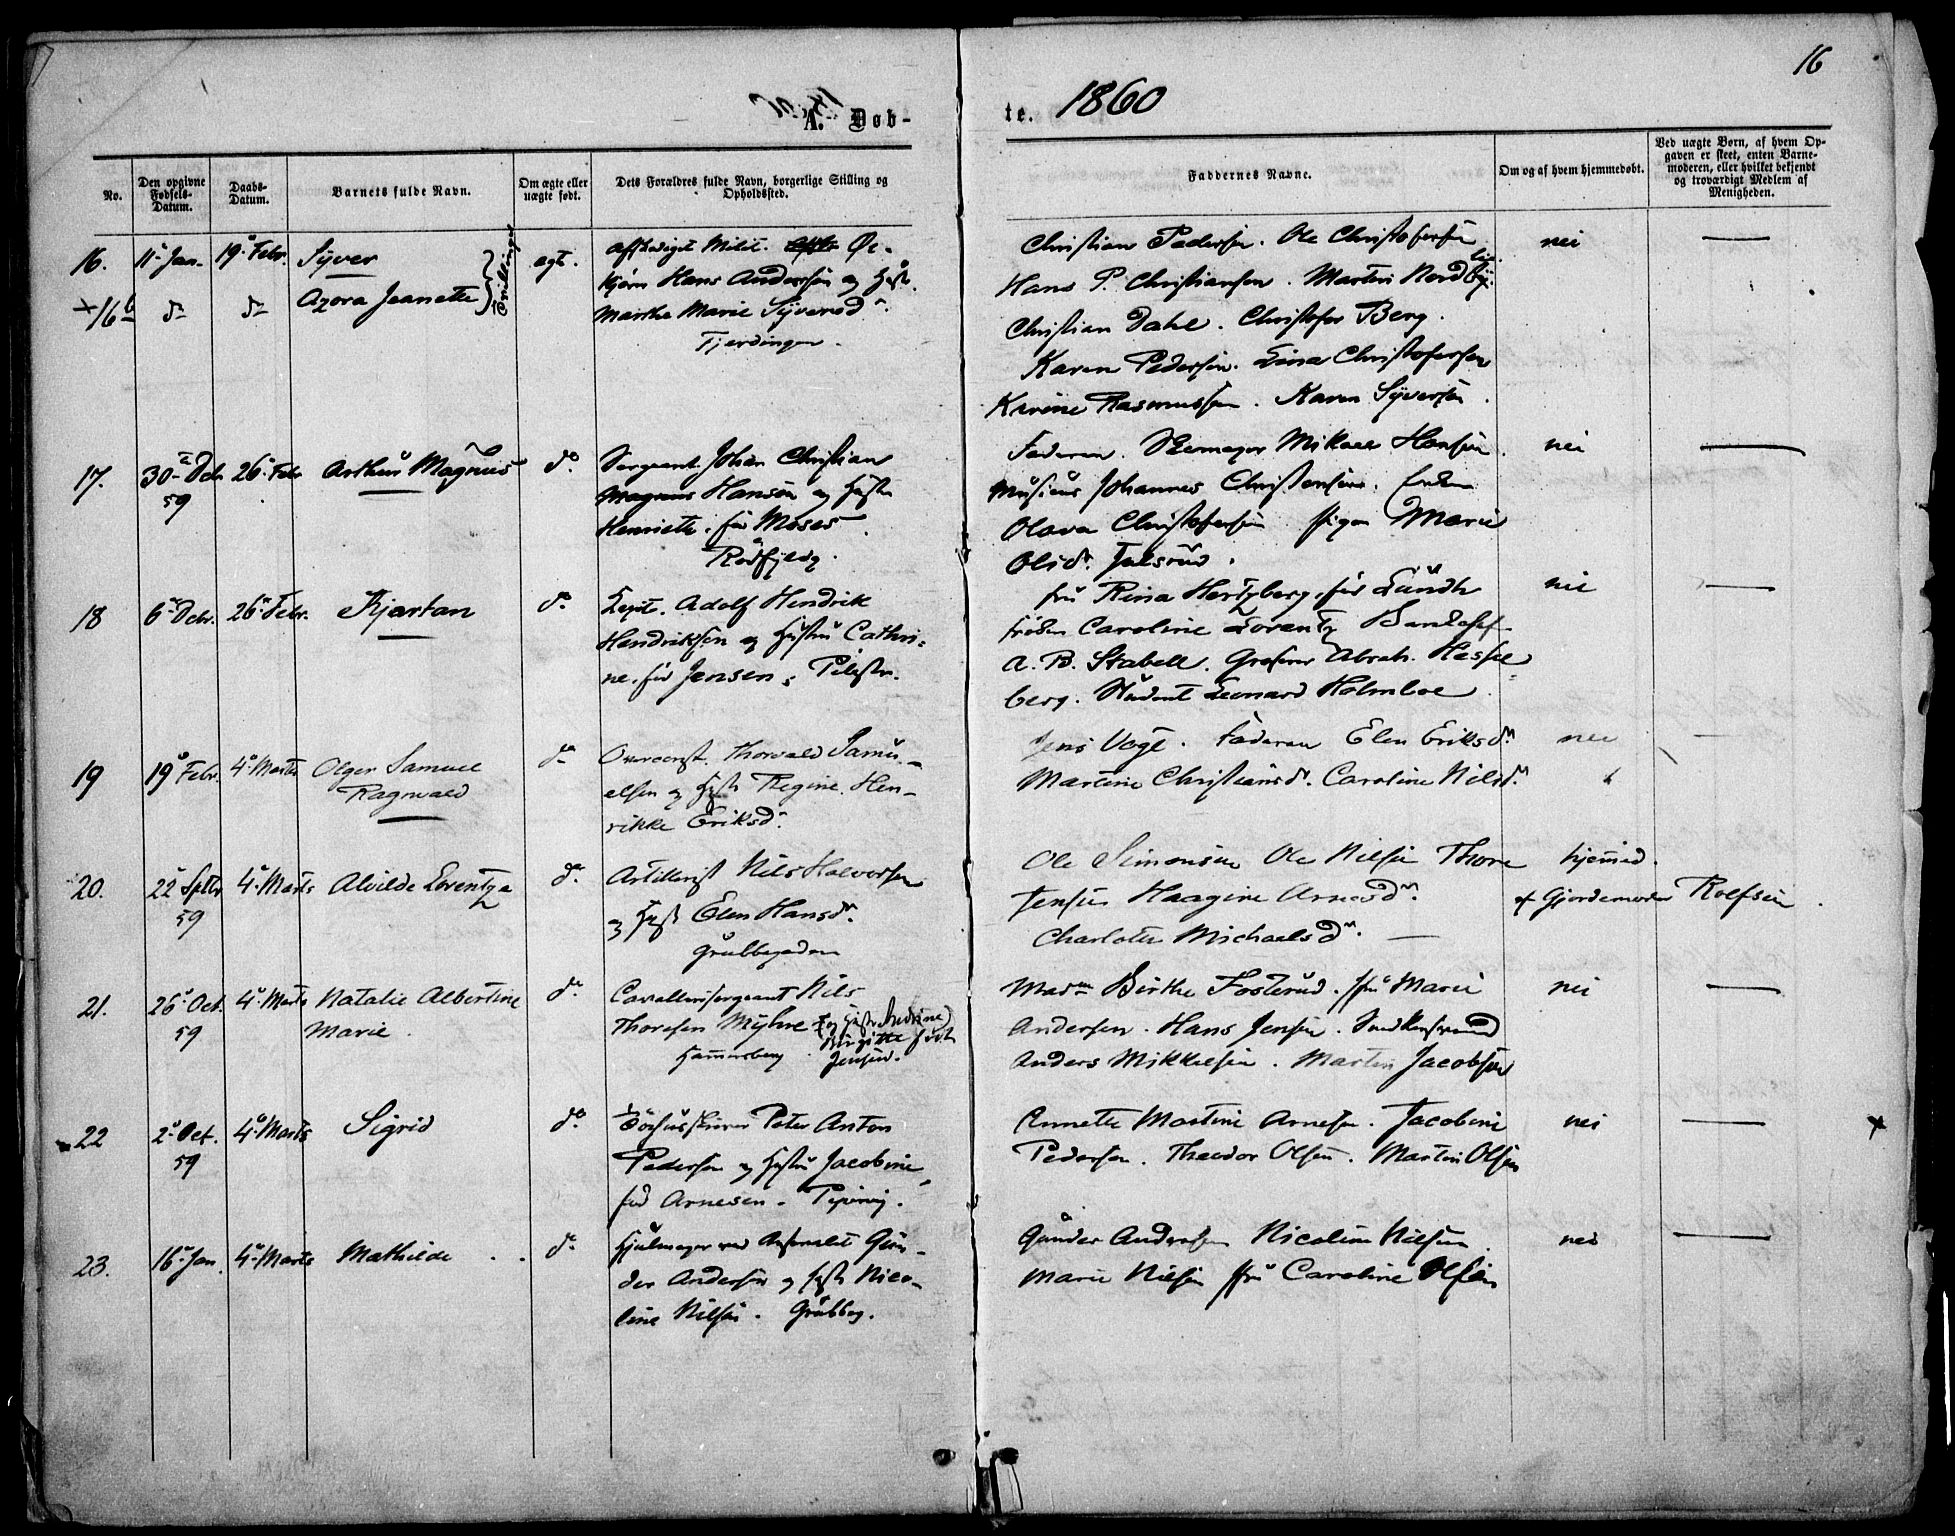 16
A. Døb-
te. 1860
No.
Den opgivne Fødsels-Datum.
Daabs-Datum.
Barnets fulde Navn.
Om ægte eller uægte født.
Dets Forældres fulde Navn, borgerlige Stilling og Opholdssted.
Faddernes Navne.
Om og af hvem hjemmedøbt.
Ved uægte Børn, af hvem Opgaven er skeet, enten Barnemoderen, eller hvilket bekjendt og troværdigt Medlem af Menigheden.
16. 11 Jan. 19 Febr. Syver
+16b do do Azora Jeanette
Tvillinger
ægt.
Afskediget Milit.
Hans Andersen og Hstr.
Marthe Marie Syversd.
Fjerdingen.
Christian Pedersen. Ole Christofersen
Hans P. Christiansen. Martin Nordby.
Christian Dahl. Christofer Berg.
Karen Pedersen. Lina Christofersen
Karine Rasmussen. Karen Syversen.
nei
17. 30 Dcb 59 26 Febr Arthur Magnus
do
Sergeant Johan Christian
Magnus Hansen og Hstr
Henriette, fød Moses.
Rødfyldg.
Faderen. Mikael Hansen.
Musicus Johannes Christensen. Enken
Olava Christofersen Pigen Marie
Olsd.
nei
18 6 Dcbr. 26 Febr. Kjartan
do
Capt. Adolf Hendrik
Hendriksen og Hustru Cathri-
ne, fød Jensen, Pilestr.
Fru Rina Hertzberg, fød Lundh
Frøken Caroline Lorentz
A. B. Stabell. Grosserer Abrah. Hessel
berg. Student Leonard Holmboe.
nei
19 19 Febr. 4 Marts Olger Samuel
Ragnvald
do
Thorvald Samu-
elsen og Hstr Regine Hen-
rikke Eriksd.
Jens Vogt. Faderen Elen Eriksd.
Martine Christiansd. Caroline Nilsd.
nei
20. 22 Septbr 59 4 Marts Alvilde Lorentza
do
Artillerist Nils Halvorsen
og Hstr Elen Hansd.
Grubbegaden
Ole Simensen Ole Nilsen Thore
Jensen Haagine Arnesd.
Charlotte Michaelsd.
hjemmed.
af Gjordemoder Rolfsen.
21. 26 Oct. 59 4 Marts Natalie Albertine
Marie.
do
Cavallerisergeant Nils
Thoresen Myhre (og Hstr Andrine)
Hammersberg. Birgitte født
Jensen.
Madm Birthe Fosterud. Fru Marie
Andersen. Hans Jensen.
Anders Mikkelsen. Martin Jacobsen
nei
22 2 Oct. 59 4 Marts Sigrid
do
Peter Anton
Pedersen og Hustru Jacobine,
fød Arnesen. Pipervig.
Annette Martine Arnesen. Jacobine
Pedersen. Theodor Olsen. Martin Olsen
nei
23. 16 Jan. 4 Marts Mathilde
do
Hjulmager ved Arsenalet Gun-
der Andersen og Hstr Nico-
line Nilsen. Grubbeg.
Gunder Andersen Nicoline Nilsen.
Marie Nilsen Fru Caroline Olsen
nei